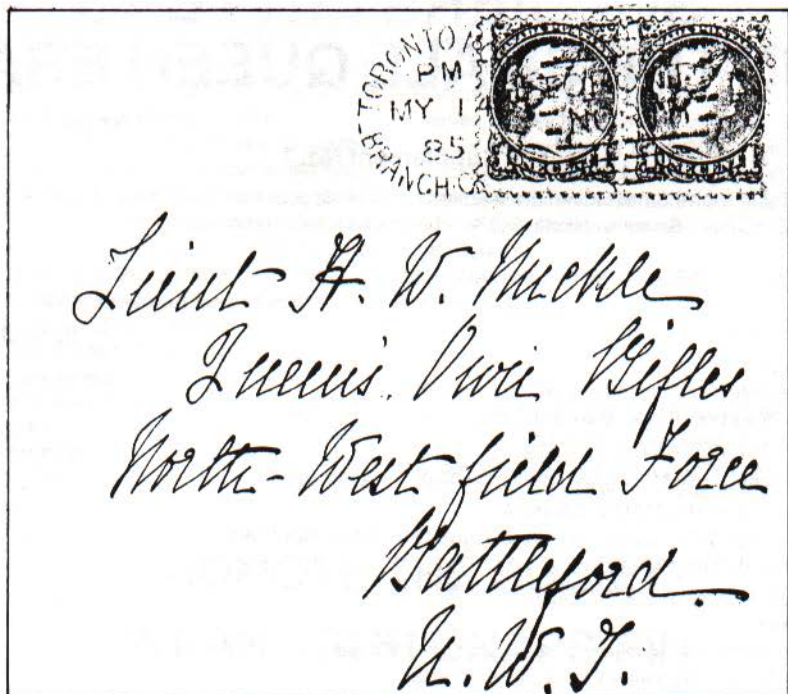 TORONTO
PM
MY 14
85
BRANCH
1 1 1 1
Lieut H. W. Mickle
Queen's. Own Rifles
North-West field Force
Battleford
N. W. T.